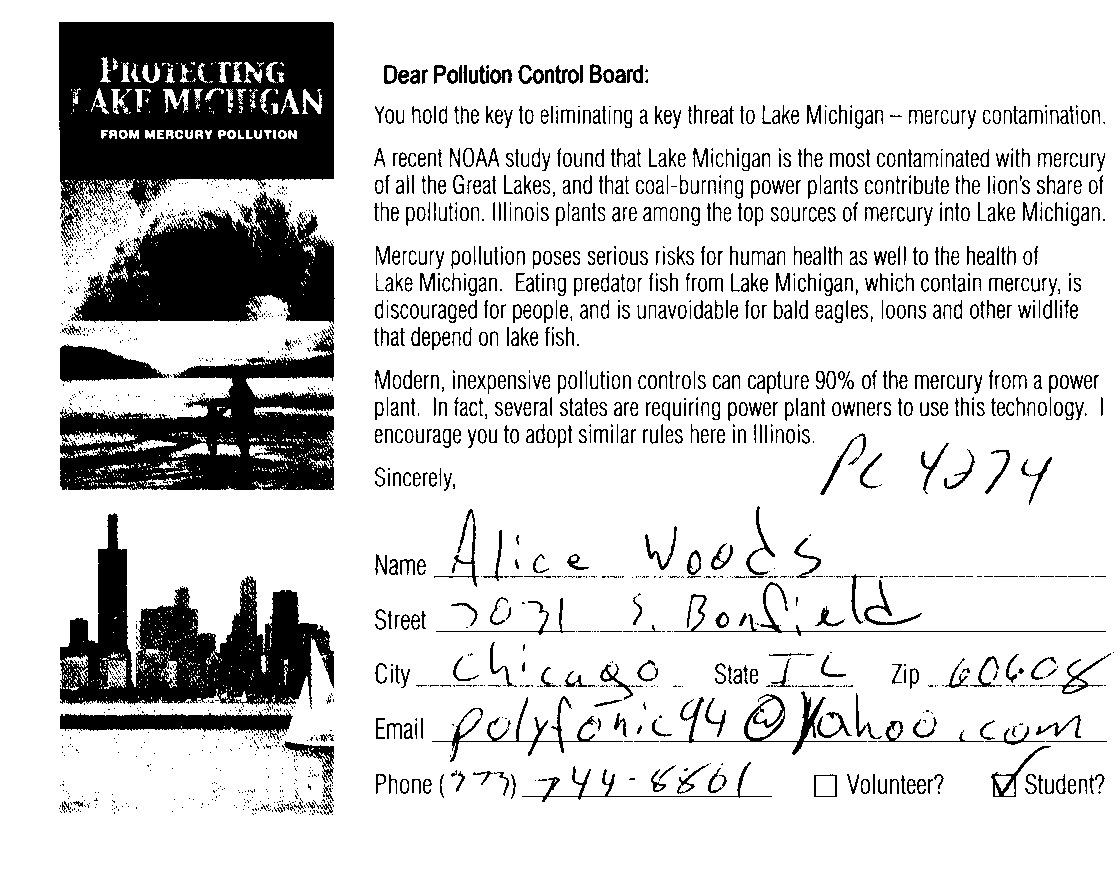 PROTECTING
LAKE MICHIGAN
FROM MERCURY POLLUTION
Dear Pollution Control Board:
You hold the key to eliminating a key threat to Lake Michigan – mercury contamination.
A recent NOAA study found that Lake Michigan is the most contaminated with mercury
of all the Great Lakes, and that coal-burning power plants contribute the lion's share of
the pollution. Illinois plants are among the top sources of mercury into Lake Michigan.
Mercury pollution poses serious risks for human health as well to the health of
Lake Michigan. Eating predator fish from Lake Michigan, which contain mercury, is
discouraged for people, and is unavoidable for bald eagles, loons and other wildlife
that depend on lake fish.
Modern, inexpensive pollution controls can capture 90% of the mercury from a power
plant. In fact, several states are requiring power plant owners to use this technology. I
encourage you to adopt similar rules here in Illinois.
Sincerely,
PC 4274
Name Alice Woods
Street 3031 S. Bonfield
City Chicago State IL Zip 60608
Email polyfonic94@yahoo.com
Phone (773) 744-8801 Volunteer? Student?